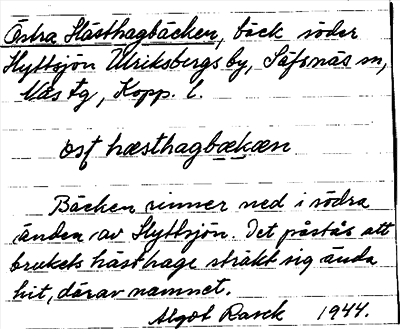 Östra Hästhagbäcken, bäck söder
Hyttsjön Ulriksbergs by, Säfsnäs sn,
Nås tg, Kopp. l.
hæsthagbækæn
Bäcken rinner ned i södra
änden av Hyttsjön. Det påstås att
brukets hästhage sträkt sig ända
hit, därav namnet.
Algot Rasck 1944.